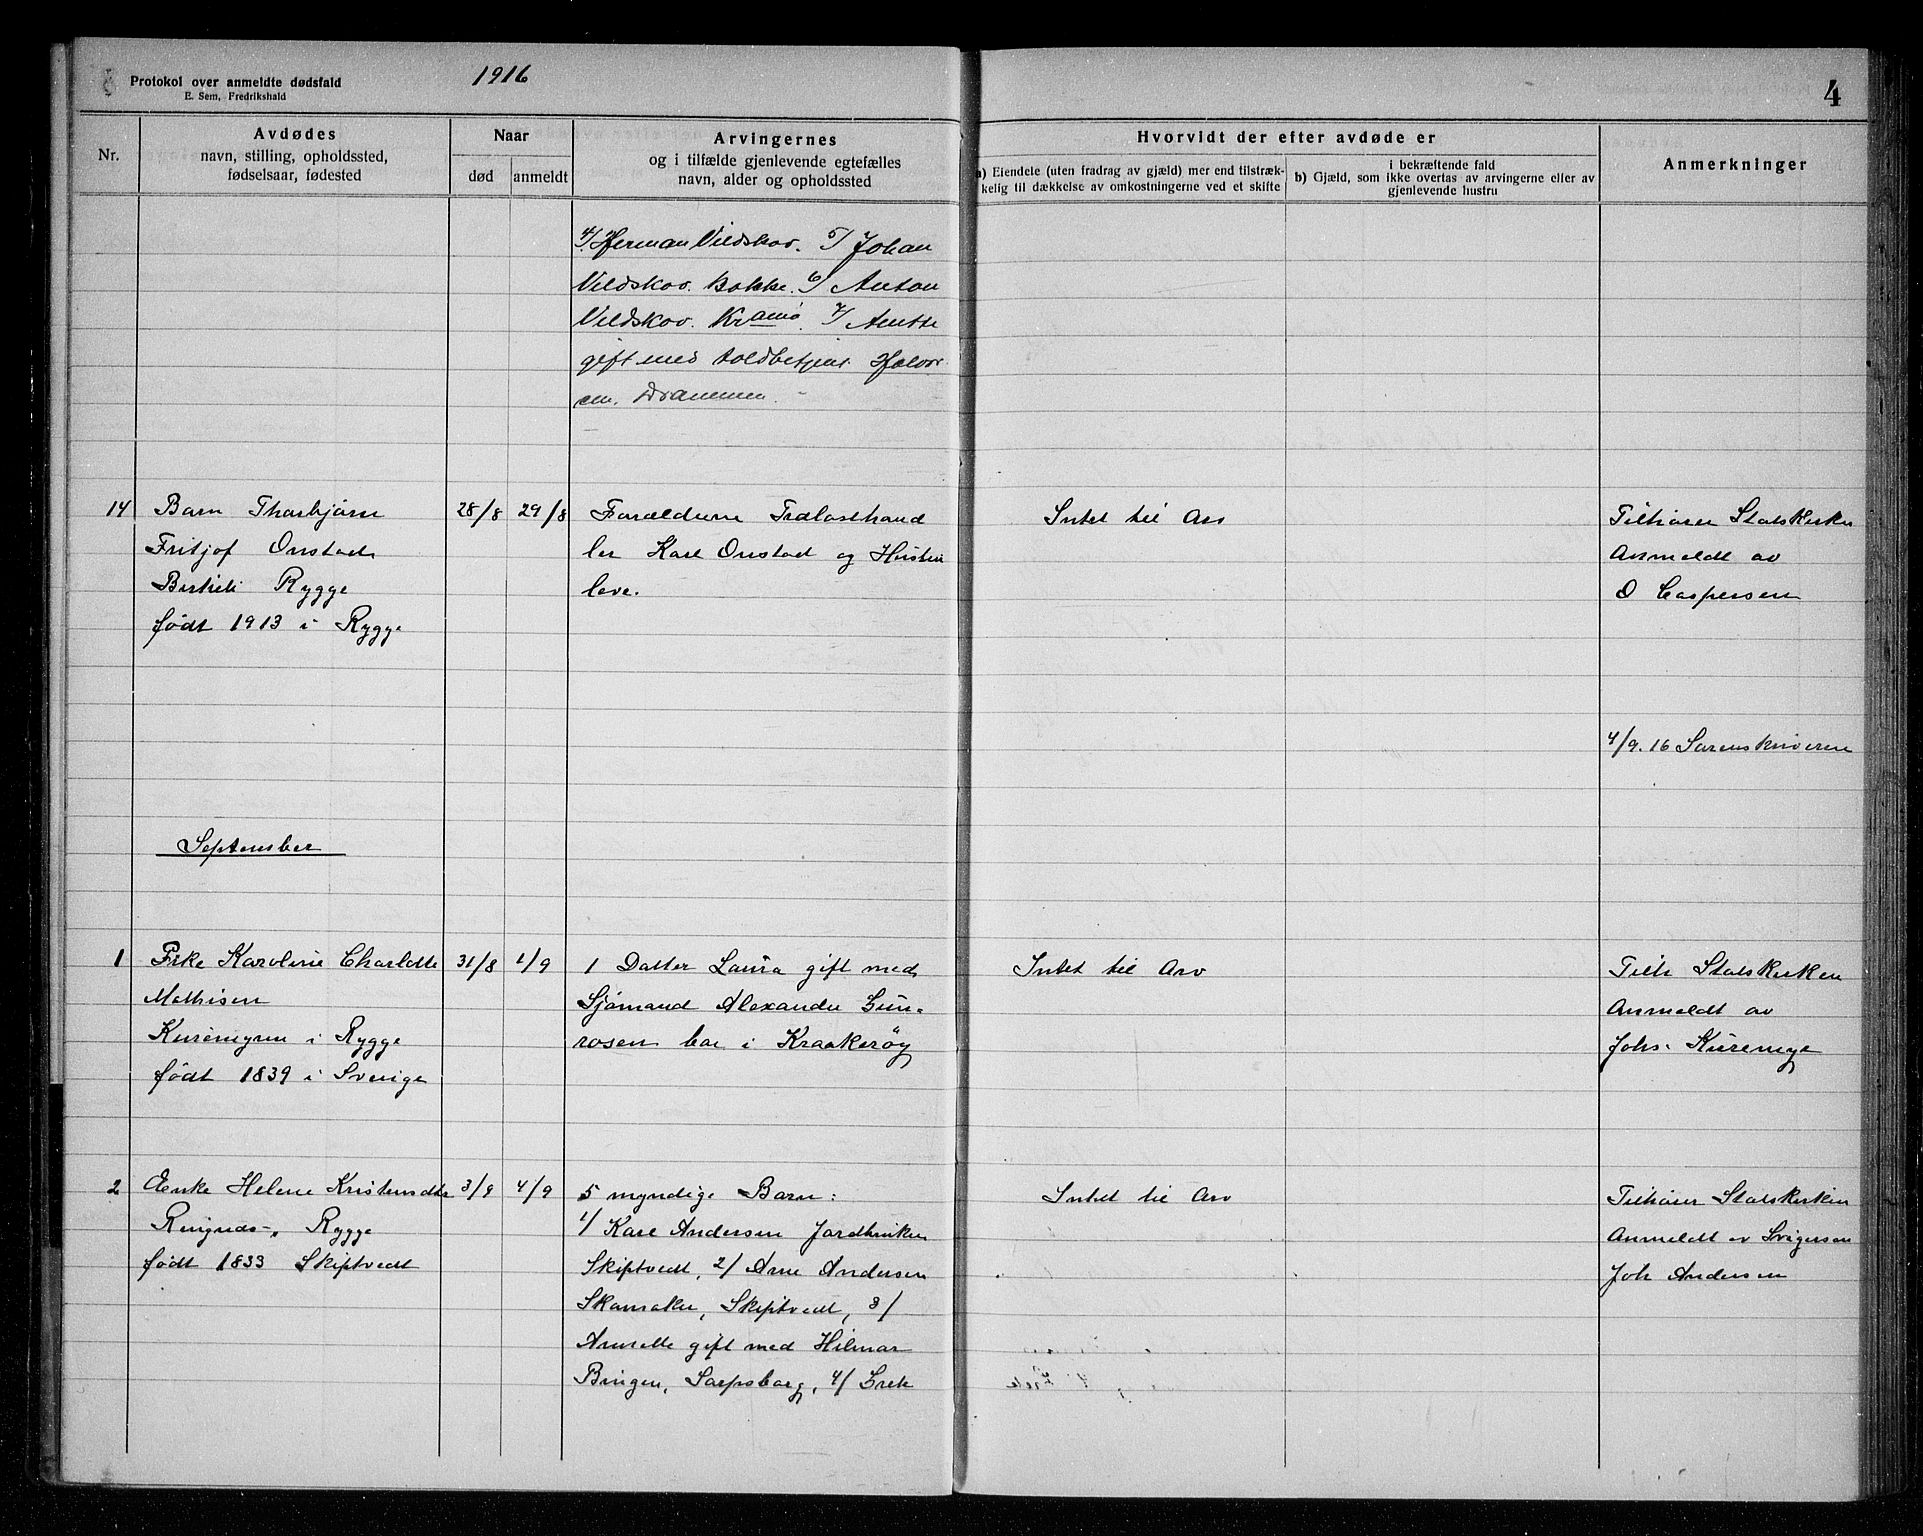 Protokol over anmeldte dødsfald
E. Sem, Fredrikshald
1916
4
Nr.
Avdødes
navn, stilling, opholdssted,
fødselsaar, fødested
Naar
død
anmeldt
Arvingernes
og i tilfælde gjenlevende egtefælles
navn, alder og opholdssted
Hvorvidt der efter avdøde er
a) Eiendele (uten fradrag av gjæld) mer end tilstræk-
kelig til dækkelse av omkostningerne ved et skifte
i bekræftende fald
b) Gjæld, som ikke overtas av arvingerne eller av
gjenlevende hustru
Anmerkninger
4/ Herman Vildskov. 5/ Johan
Vildskov. Bakke. 6/ Anton
Vildskov. Kr.ania. 7/ Anette
gift med toldbetjent Halvor
sen. Drammen.
14
Barn Thorbjørn
Fritjof Onstad
Birkeli Rygge
født 1913 i Rygge
28/8
29/8
Forældrene Trælasthand
ler Karl Onstad og Hustru
leve.
Intet til Arv
Tilhører Statskirken
Anmeldt av
O Caspersen
4/9. 16 Sorenskriveren
September
1
Frke Karoline Charlotte
Mathisen
Kuremyren i Rygge
født 1839 i Sverige
31/8
1/9
1 Datter Laura gift med
Sjømand Alexander Gun-
rosen bor i Kraakerøy
Intet til Arv
Tilh Statskirken
Anmeldt av
Johs. Kuremyr
2
Enke Helene Kristensdtr
Ringneds-, Rygge
født 1833 Skiptvedt
3/9
4/9
5 myndige Barn:
1/ Karl Andersen Jordbruker
Skiptvedt, 2/ Arne Andersen
Skamsaker, Skiptvedt, 3/
Annette gift med Hilmar
Bingen, Sarpsborg, 4/ Grete
Intet til Arv
Tilhører Statskirken
Anmeldt av Svigersøn
Joh Andersen